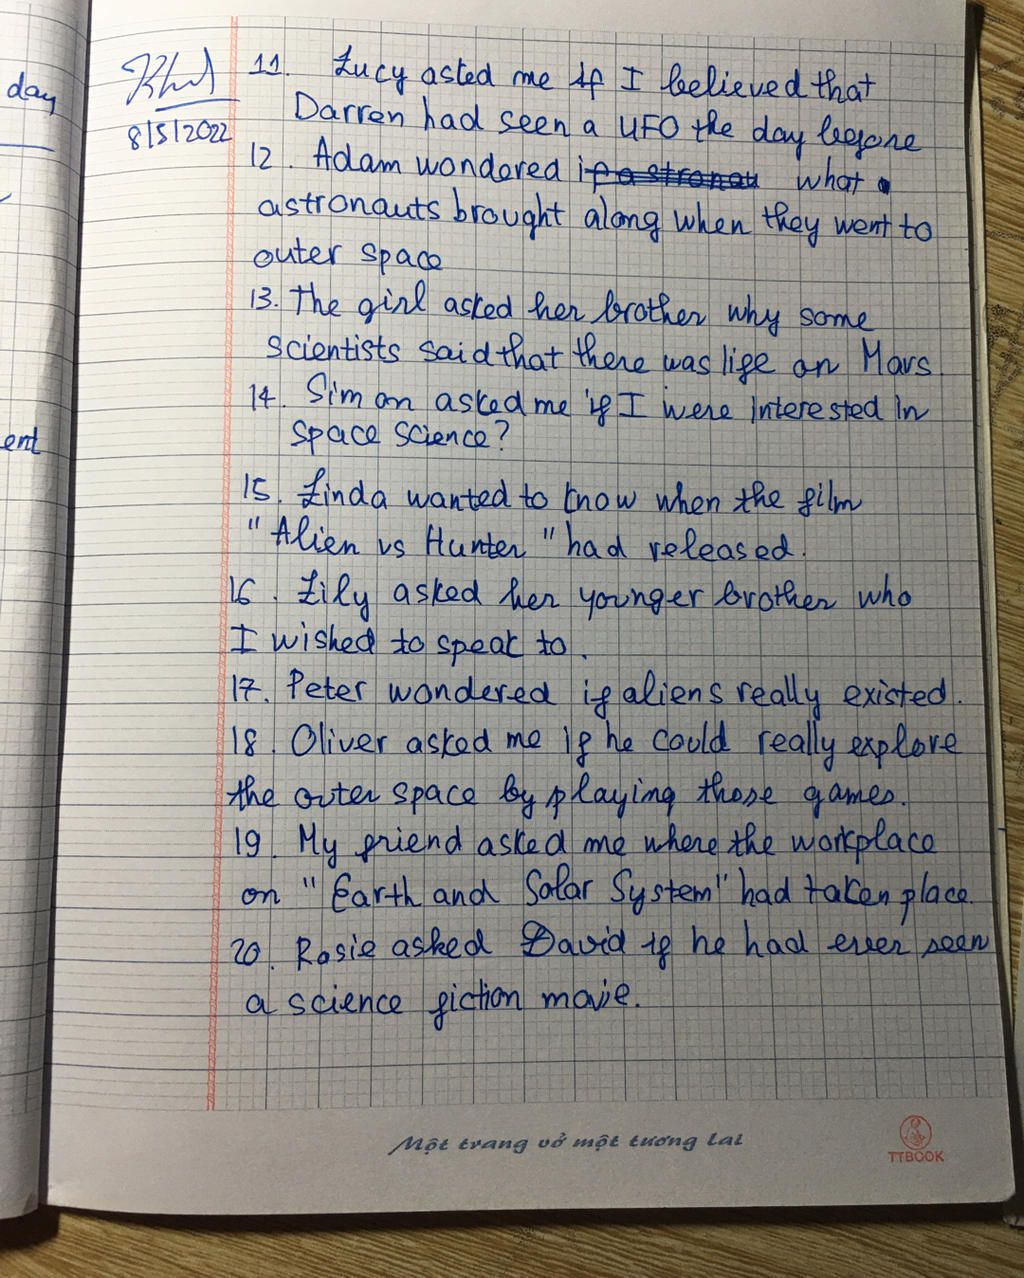 day
ent
8/5/2022
11. Lucy asked me if I believed that
Darren had seen a UFO the day before
12. Adam wondered if a stronau what
astronauts brought along when they went to
outer space
13. The girl asked her brother why some
scientists said that there was life on Mars.
14. Simon asked me if I were interested in
space science?
15. Linda wanted to know when the film
"Alien vs Hunter" had released.
16. Lily asked her younger brother who
I wished to speak to.
17. Peter wondered if aliens really existed.
18. Oliver asked me if he could really explore
the outer space by playing those games.
19. My friend asked me where the workplace
on "Earth and Solar System" had taken place.
20. Rosie asked David if he had ever seen
a science fiction movie.
Một trang vở một tương lai
TTBOOK